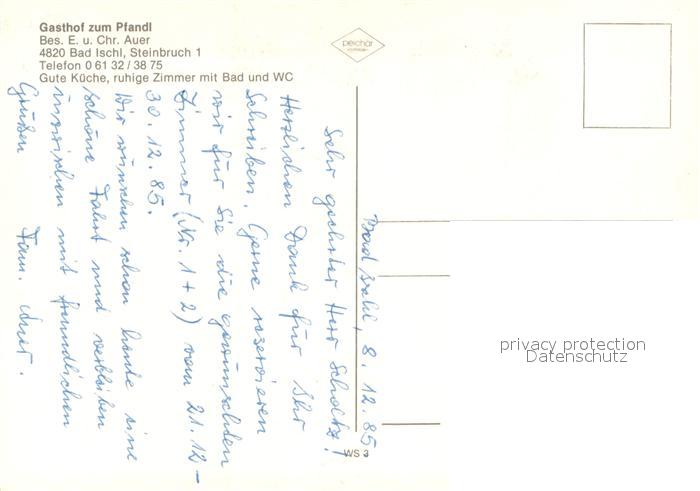 Gasthof zum Pfandl
Bes. E. u. Chr. Auer
4820 Bad Ischl, Steinbruch 1
Telefon 0 61 32 / 38 75
Gute Küche, ruhige Zimmer mit Bad und WC
peichär
Bad Ischl, 8. 12. 85
Sehr geehrter Herr Scholtz!
Herzlichen Dank für Ihr
Schreiben. Gerne reservieren
wir für Sie die gewünschten
Zimmer (Nr. 1 + 2) vom 21. 12 –
30. 12. 85.
Wir wünschen schon heute eine
schöne Fahrt und verbleiben
inzwischen mit freundlichen
Grüßen Fam. Auer.
privacy protection
Datenschutz
WS 3